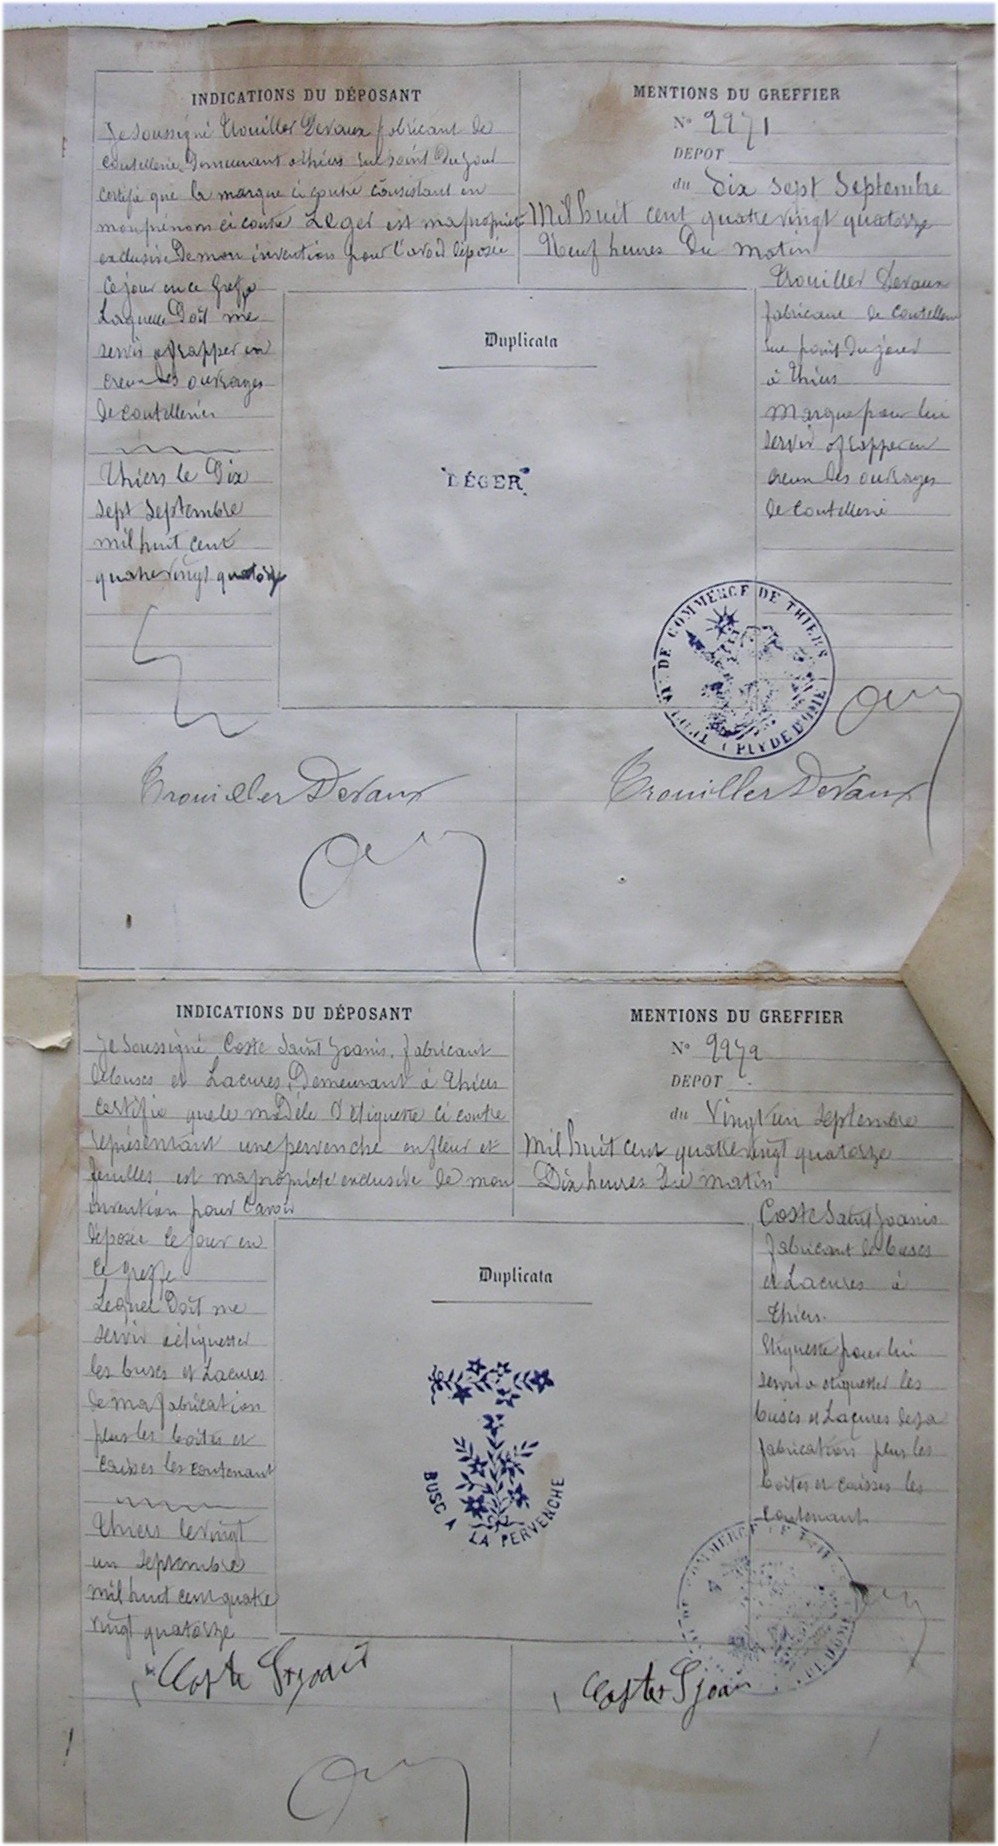 INDICATIONS DU DÉPOSANT
Je soussigné Trouiller Devaux fabricant de
coutellerie, Demeurant à thiers rue point Du jour
certifie que la marque ci contre consistant en
mon prénom ci contre Leger est ma propriété
exclusive De mon invention pour l'avoir déposée
ce jour en ce greffe
Laquelle Doit me
servir à frapper en
creux des ouvrages
de coutelleries
Thiers le Dix
sept septembre
mil huit cent
quatre vingt quatorze
MENTIONS DU GREFFIER
N° 2271
DEPOT
du Dix sept septembre
Mil huit cent quatre vingt quatorze
Neuf heures Du matin
Trouiller Devaux
fabricant de coutellerie
rue point Du jour
à Thiers
Marque pour lui
servir à frapper en
creux des ouvrages
de coutellerie
Duplicata
LÉGER
DE COMMERCE DE THIERS
PUY DE DOME
Trouiller Devaux
Trouiller Devaux
INDICATIONS DU DÉPOSANT
Je soussigné Coste Saint Joanis, fabricant
de buscs et Lacures, Demeurant à Thiers
certifie que le modèle D'étiquette ci contre
représentant une pervenche en fleur et
feuilles est ma propriété exclusive de mon
invention pour l'avoir
déposée ce jour en
ce greffe
Lequel Doit me
servir à étiquetter
les buscs et Lacures
de ma fabrication
plus les boîtes et
caisses les contenant
Thiers le vingt
un septembre
mil huit cent quatre
vingt quatorze
MENTIONS DU GREFFIER
N° 2272
DEPOT
du Vingt un septembre
mil huit cent quatre vingt quatorze
Dix heures Du matin
Coste Saint Joanis
fabricant de buscs
et Lacures à
Thiers.
Etiquette pour lui
servir à étiquetter les
buscs et Lacures de sa
fabrication plus les
boîtes et caisses les
contenant
Duplicata
BUSC A LA PERVENCHE
COMMERCE
DE DOME
Coste St joanis
Coste St joanis